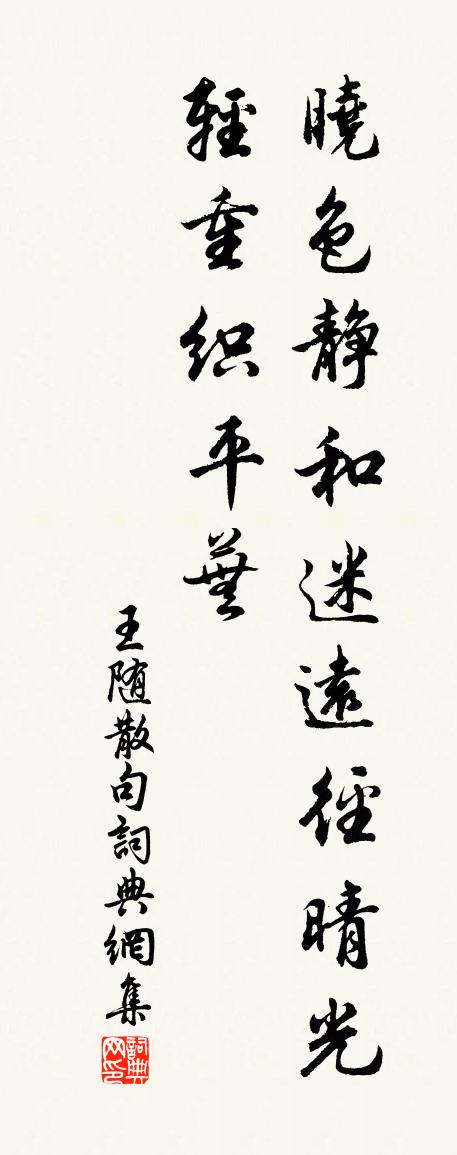 曉色静和迷遠徑晴光
輕重织平蕪
王随散句詞典網集
詞典网印